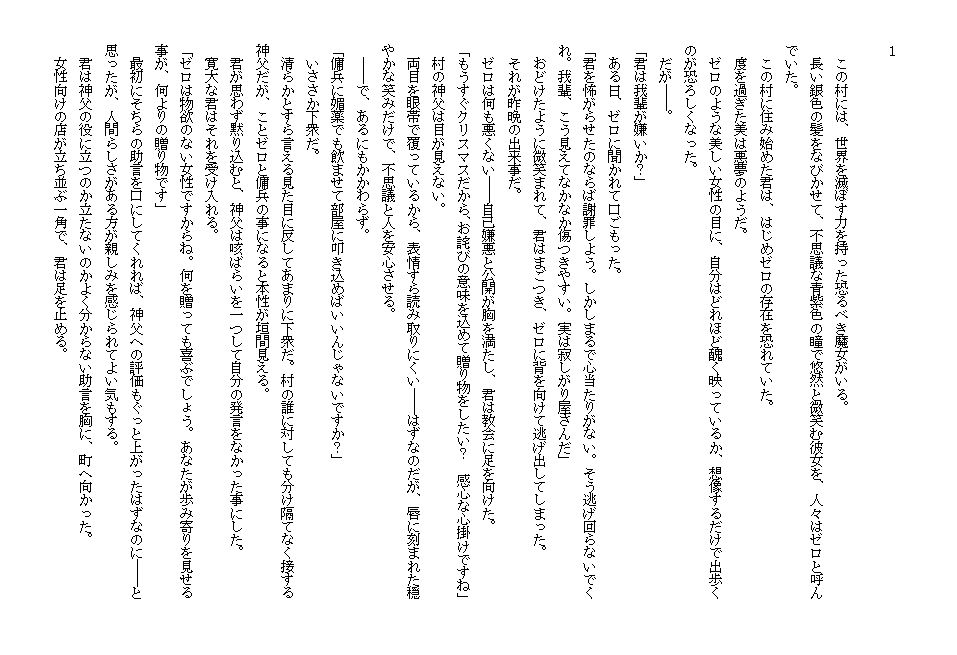 1
この村には、世界を滅ぼす力を持った恐るべき魔女がいる。
長い銀色の髪をなびかせて、不思議な青紫色の瞳で悠然と微笑む彼女を、人々はゼロと呼ん
でいた。
この村に住み始めた君は、はじめゼロの存在を恐れていた。
度を過ぎた美は悪夢のようだ。
ゼロのような美しい女性の目に、自分はどれほど醜く映っているか、想像するだけで出歩く
のが恐ろしくなった。
だが――。
「君は我輩が嫌いか？」
ある日、ゼロに聞かれて口ごもった。
「君を怖がらせたのならば謝罪しよう。しかしまるで心当たりがない。そう逃げ回らないでく
れ。我輩、こう見えてなかなか傷つきやすい。実は寂しがり屋さんだ」
おどけたように微笑まれて、君はまごつき、ゼロに背を向けて逃げ出してしまった。
それが昨晩の出来事だ。
ゼロは何も悪くない――自己嫌悪と公開が胸を満たし、君は教会に足を向けた。
「もうすぐクリスマスだから、お詫びの意味を込めて贈り物をしたい？　感心な心掛けですね」
村の神父は目が見えない。
両目を眼帯で覆っているから、表情すら読み取りにくい――はずなのだが、唇に刻まれた穏
やかな笑みだけで、不思議と人を安心させる。
――で、あるにもかかわらず。
「傭兵に媚薬でも飲ませて部屋に叩き込めばいいんじゃないですか？」
いささか下衆だ。
清らかとすら言える見た目に反してあまりに下衆だ。村の誰に対しても分け隔てなく接する
神父だが、ことゼロと傭兵の事になると本性が垣間見える。
君が思わず黙り込むと、神父は咳ばらいを一つして自分の発言をなかった事にした。
寛大な君はそれを受け入れる。
「ゼロは物欲のない女性ですからね。何を贈っても喜ぶでしょう。あなたが歩み寄りを見せる
事が、何よりの贈り物です」
最初にそちらの助言を口にしてくれれば、神父への評価もぐっと上がったはずなのに――と
思ったが、人間らしさがある方が親しみを感じられてよい気もする。
君は神父の役に立つのか立たないのかよく分からない助言を胸に、町へ向かった。
女性向けの店が立ち並ぶ一角で、君は足を止める。